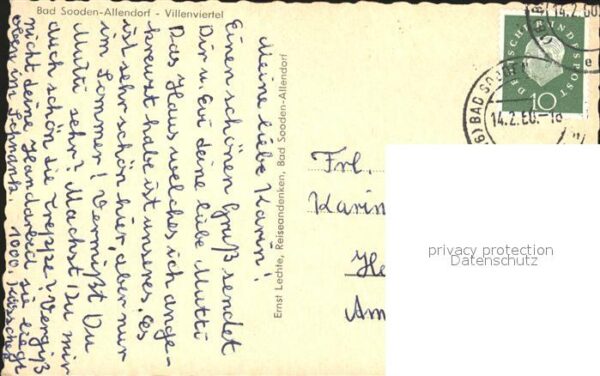 Bad Sooden-Allendorf - Villenviertel
Meine liebe Karin!
Einen schönen Gruß sendet
Dir u. Evi deine liebe Mutti
Das Haus welches ich ange-
kreuzt habe ist unseres. Es
ist sehr schön hier, aber nur
im Sommer! Vermißt Du
Mutti sehr? Machst Du mir
auch schön die Treppe? Vergiß
nicht deine Handarbeit sie liegt
oben im Schrank 1000
Ernst Lechte, Reiseandenken, Bad Sooden-Allendorf
DEUTSCHE BUNDESPOST
10
14.2.60.
e
BAD SOODEN
14.2.60.-18
Frl.
Karin
He
Am
privacy protection
Datenschutz